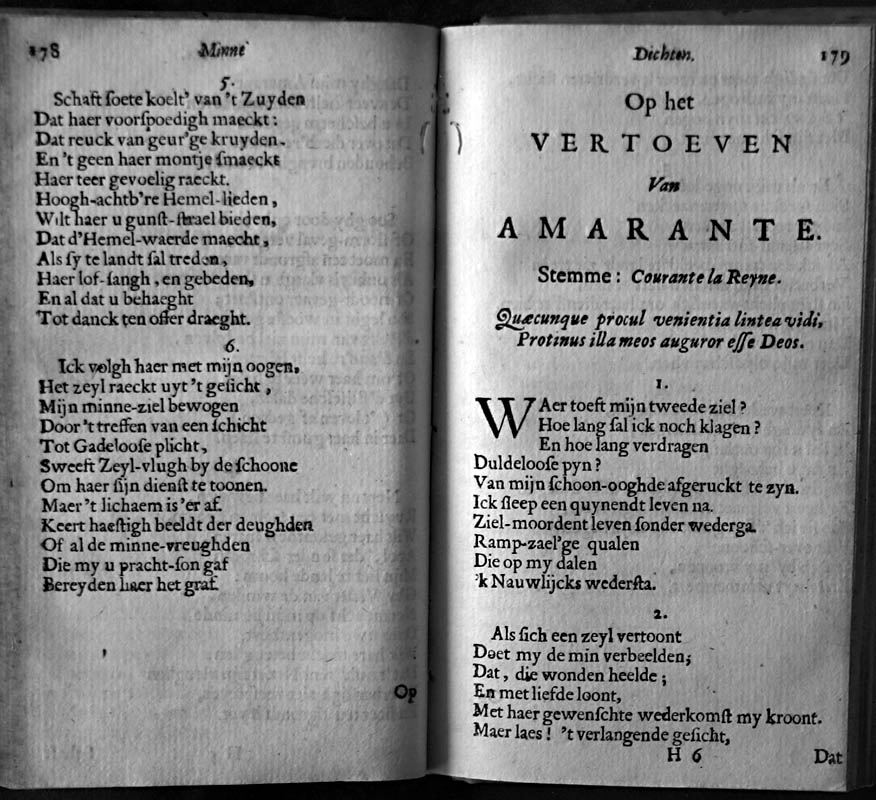 178 Minne
5.
Schaft ſoete koelt' van 't Zuyden
Dat haer voorſpoedigh maeckt:
Dat reuck van geur'ge kruyden.
En 't geen haer montje ſmaeckt
Haer teer gevoelig raeckt.
Hoogh-achtb're Hemel-lieden,
Wilt haer u gunſt-ſtrael bieden,
Dat d'Hemel-waerde maecht,
Als ſy te landt ſal treden,
Haer lof-ſangh, en gebeden,
En al dat u behaeght
Tot danck ten offer draeght.
6.
Ick volgh haer met mijn oogen,
Het zeyl raeckt uyt 't geſicht,
Mijn minne-ziel bewogen
Door 't treffen van een ſchicht
Tot Gadelooſe plicht,
Sweeft Zeyl-vlugh by de ſchoone
Om haer ſijn dienſt te toonen.
Maer 't lichaem is 'er af.
Keert haeſtigh beeldt der deughden
Of al de minne-vreughden
Die my u pracht-ſon gaf
Bereyden haer het graf.
Op
Dichten. 179
Op het
VERTOEVEN
Van
AMARANTE.
Stemme: Courante la Reyne.
Quæcunque procul venientia lintea vidi,
Protinus illa meos auguror eſſe Deos.
1.
WAer toeft mijn tweede ziel?
Hoe lang ſal ick noch klagen?
En hoe lang verdragen
Duldelooſe pyn?
Van mijn ſchoon-ooghde afgeruckt te zyn.
Ick ſleep een quynendt leven na.
Ziel-moordent leven ſonder wederga.
Ramp-zael'ge qualen
Die op my dalen
'k Nauwlijcks wederſta.
2.
Als ſich een zeyl vertoont
Doet my de min verbeelden;
Dat, die wonden heelde;
En met liefde loont,
Met haer gewenſchte wederkomſt my kroont.
Maer laes! 't verlangende geſicht,
H 6 Dat